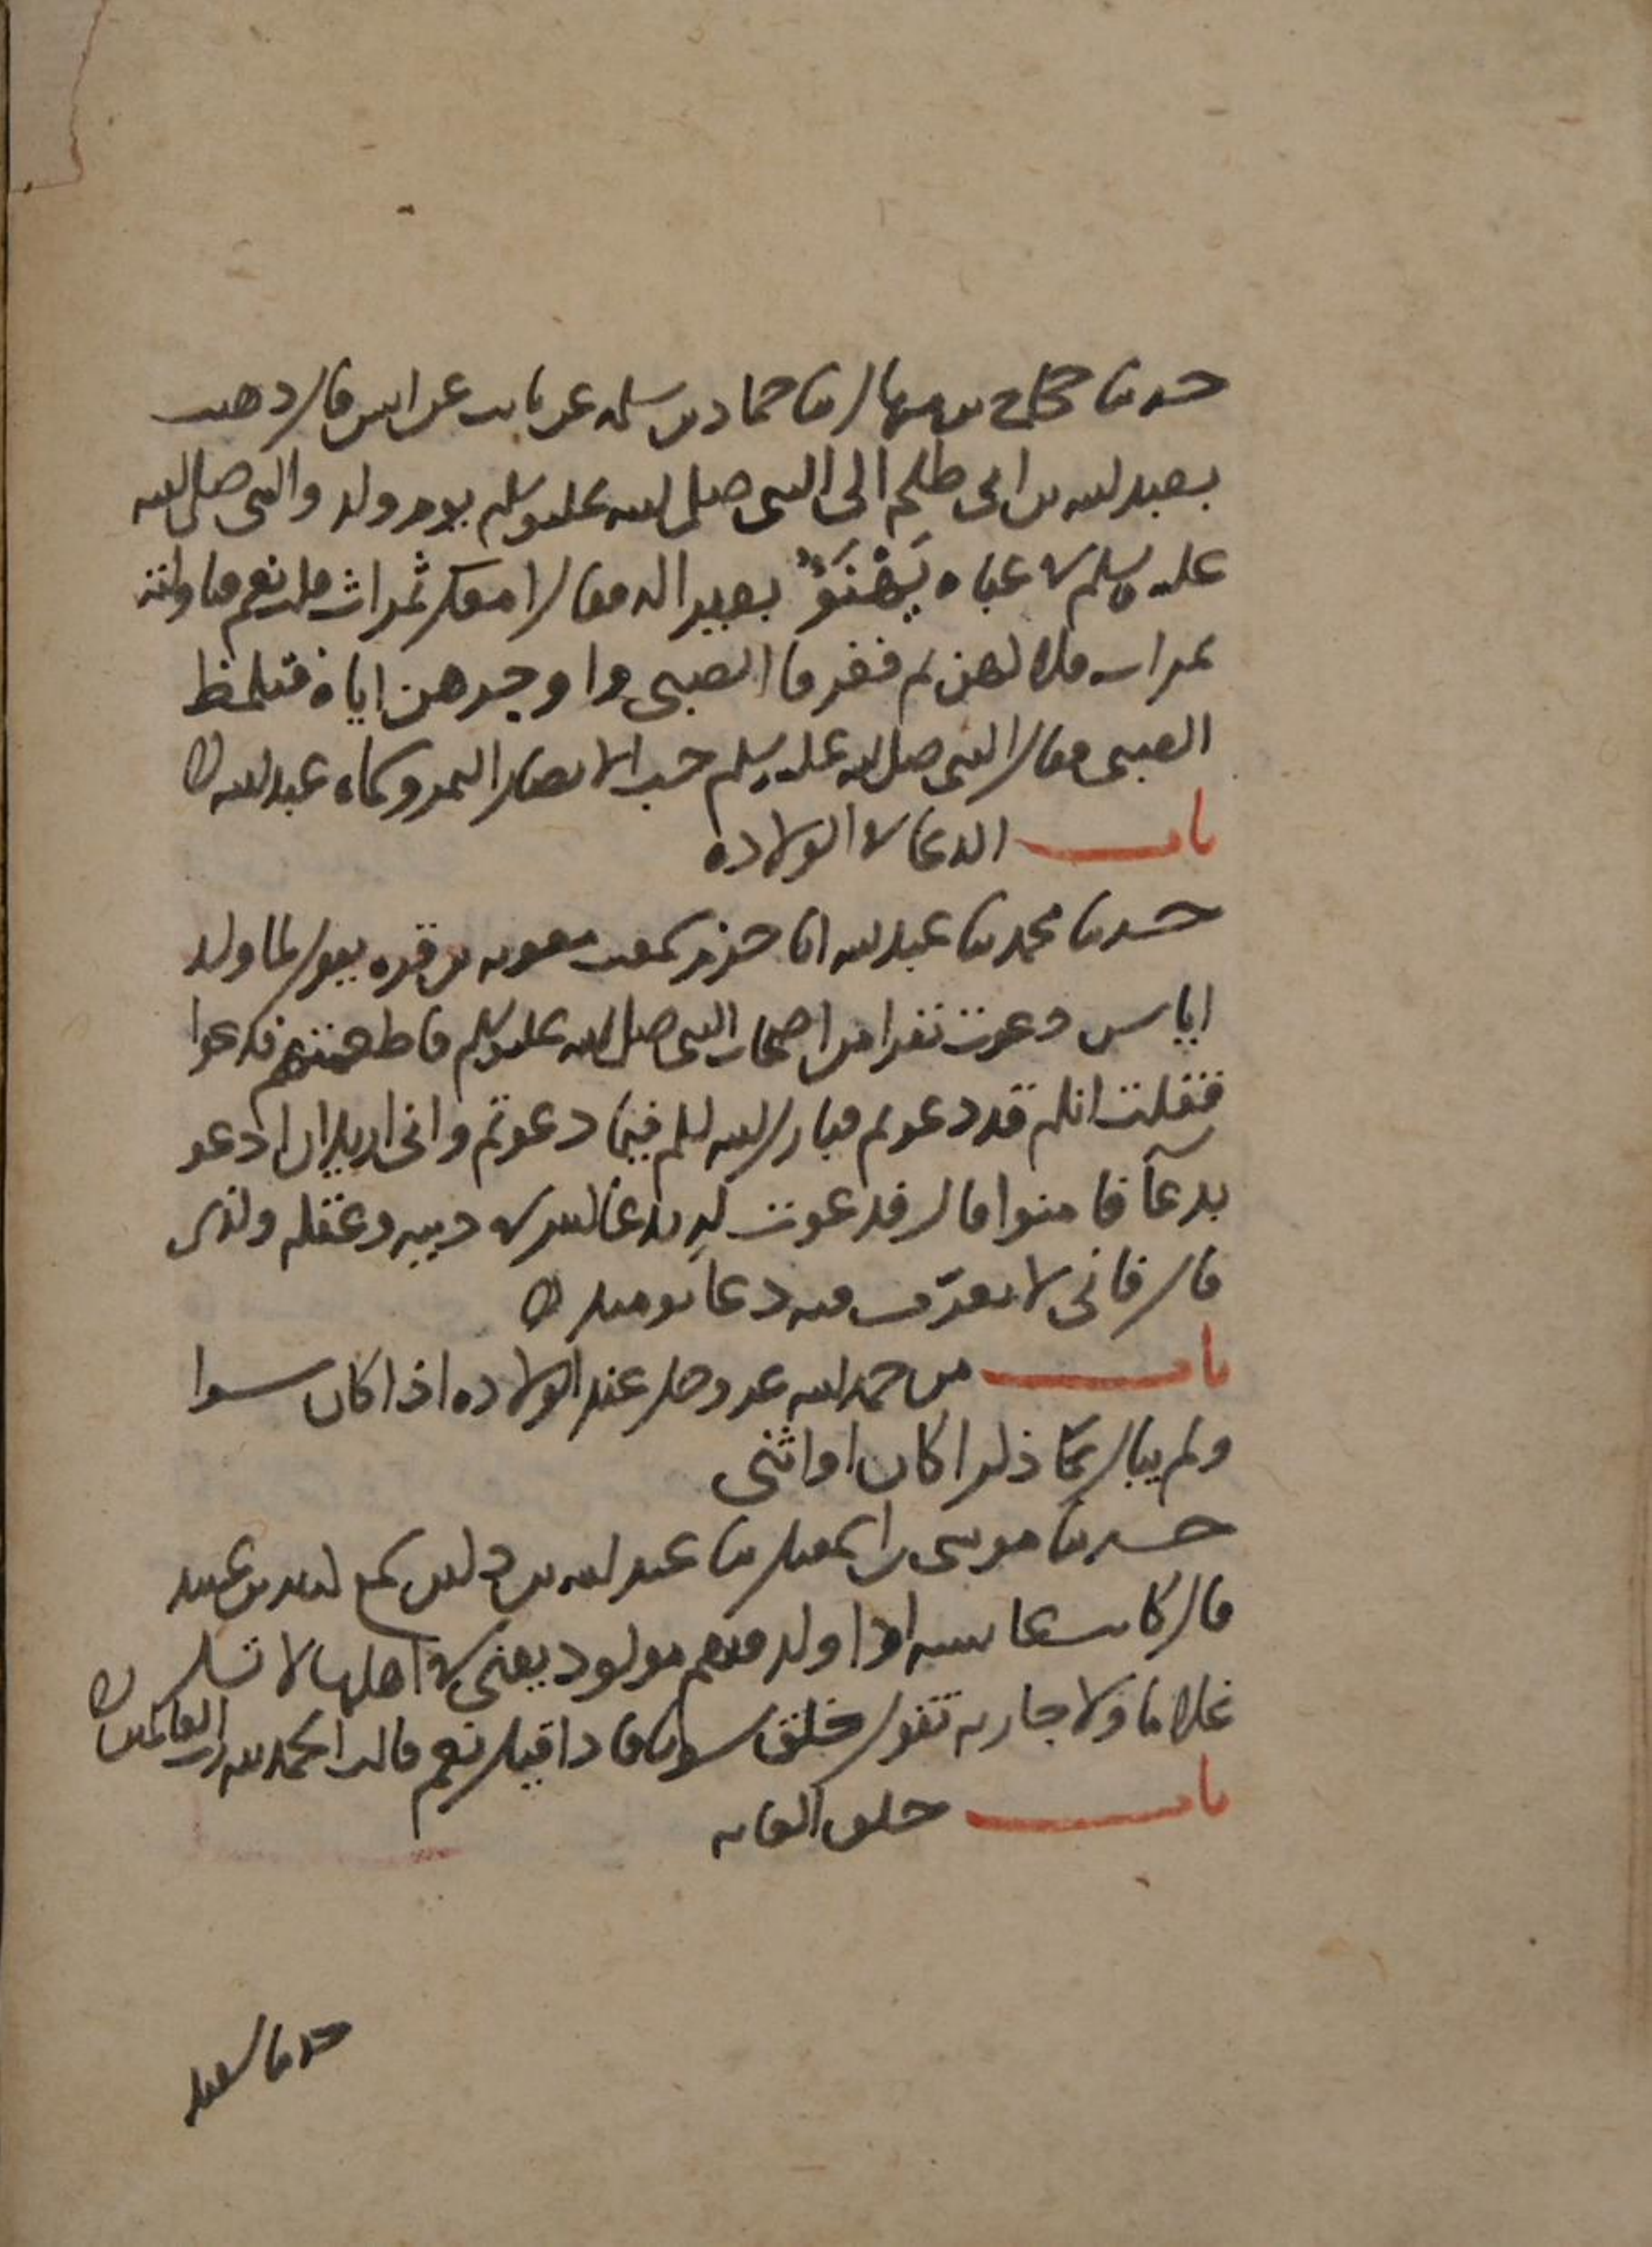 حدثنا حجاج بن منهال ثنا حماد بن سلمه عن ثابت عن انس قال ذهبت
بعبد الله بن ابى طلحه الى النبى صلى الله عليه وسلم يوم ولد والنبى صلى الله
عليه وسلم فى عباه يَهْنَؤُ بعيرا له فقال امعك تمرات قلت نعم فناولته
تمرات فلاكهن ثم فغر فا الصبى واوجرهن اياه فتلمظ
الصبى فقال النبى صلى الله عليه وسلم حب الانصار التمر وسماه عبد الله ه
باب الدعا فى الولاده
حدثنا محمد ثنا عبد الله انا حزم سمعت معويه بن قره يقول لما ولد
اياس دعوت نفرا من اصحاب النبى صلى الله عليه وسلم فاطعمتهم فدعوا
فقلت انكم قد دعوتم فبارك الله لكم فيما دعوتم وانى اريد ان ادعو
بدعآ فامنوا قال فدعوت له بدعا كثير فى دينه وعقله وكذى
قال فانى لا تعرّف فيه دعا يومئذ ه
باب من حمد الله عز وجل عند الولاده اذا كان سويا
ولم يبال عما ذكرا كان او انثى
حدثنا موسى بن اسمعيل ثنا عبد الله بن دكين سمع كثير بن عبيد
قال كانت عايشه اذا ولد فيهم مولود يعنى فى اهلها لا تسل
غلاما ولا جاريه تقول خلق سويا فاذا قيل نعم قالت الحمد لله رب العالمين ه
باب حلق العانه
حدثنا سعيد